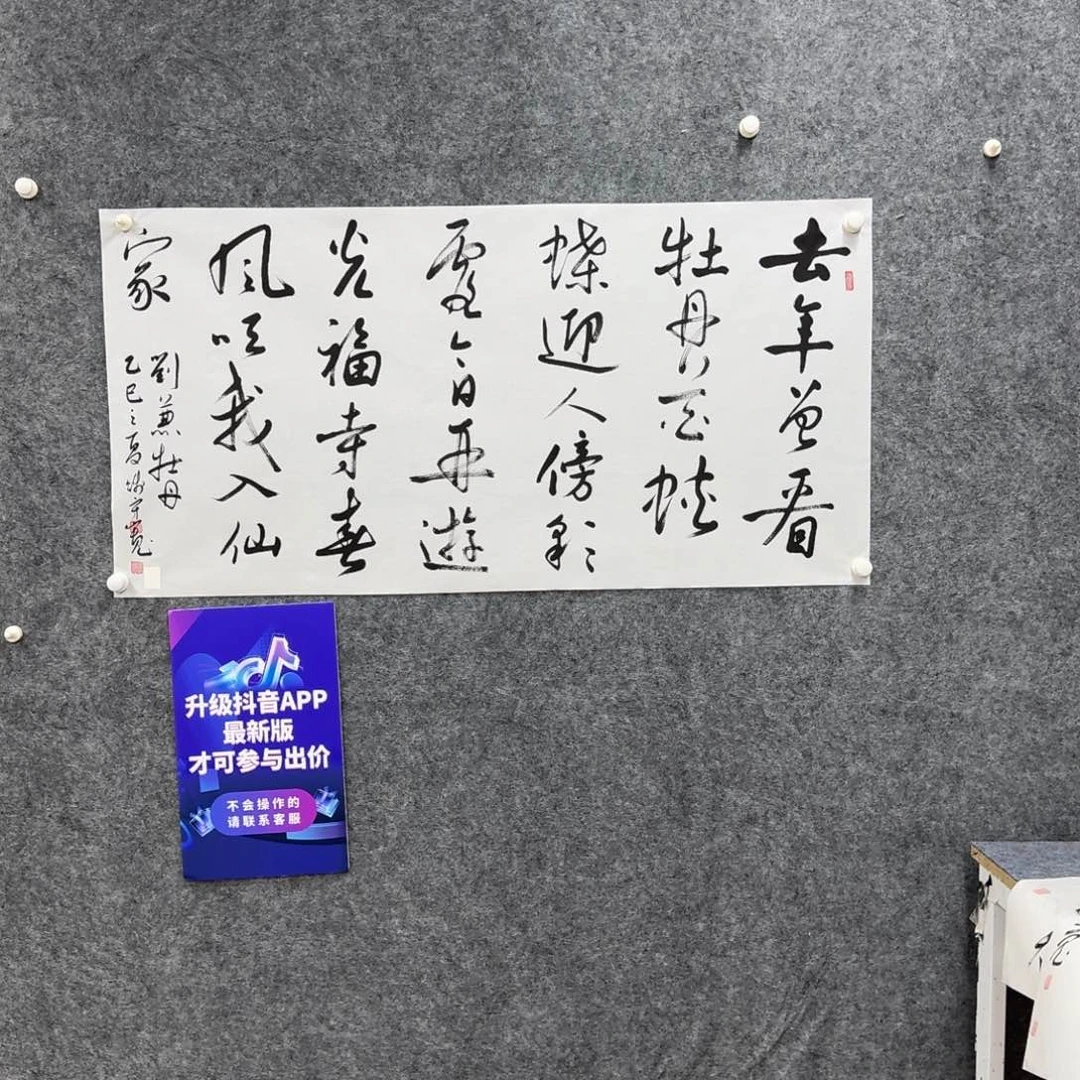 去年曾看
牡丹花蛺
蝶迎人傍彩
霞今日再遊
光福寺春
風吹我入仙
家
劉兼牡丹
乙巳之夏
升级抖音APP
最新版
才可参与出价
不会操作的
请联系客服